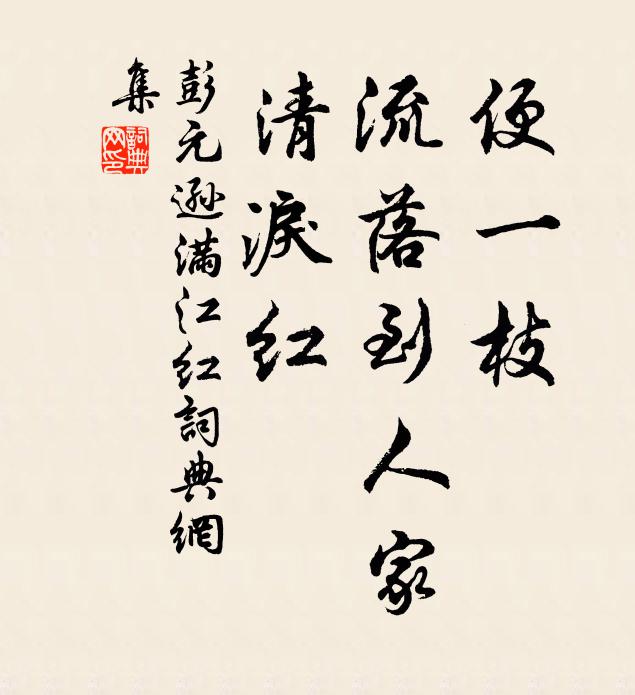 便一枝
流落到人家
清淚紅
彭元遜滿江紅詞典網
集
詞典網印